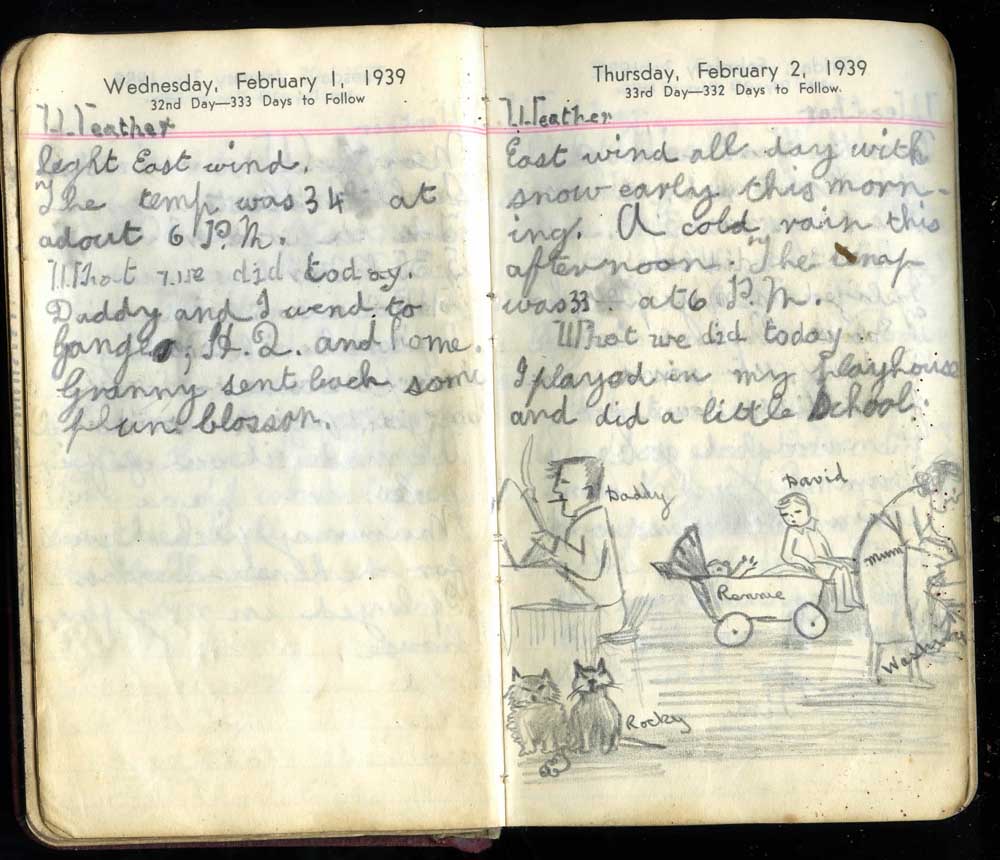 Wednesday, February 1, 1939
32nd Day—333 Days to Follow
Weather
Light East wind.
The temp was 34 at
adout 6 P.M.
What we did today.
Daddy and I went to
Ganges, H.Q. and home.
Granny sent back some
plum blossom.
Thursday, February 2, 1939
33rd Day—332 Days to Follow.
Weather
East wind all day with
snow early this morn-
ing. A cold rain this
afternoon. The
was 33 at 6 P.M.
What we did today.
I played in my playhouse
and did a little School.
Daddy
David
mum
Ronnie
Washing
Rocky